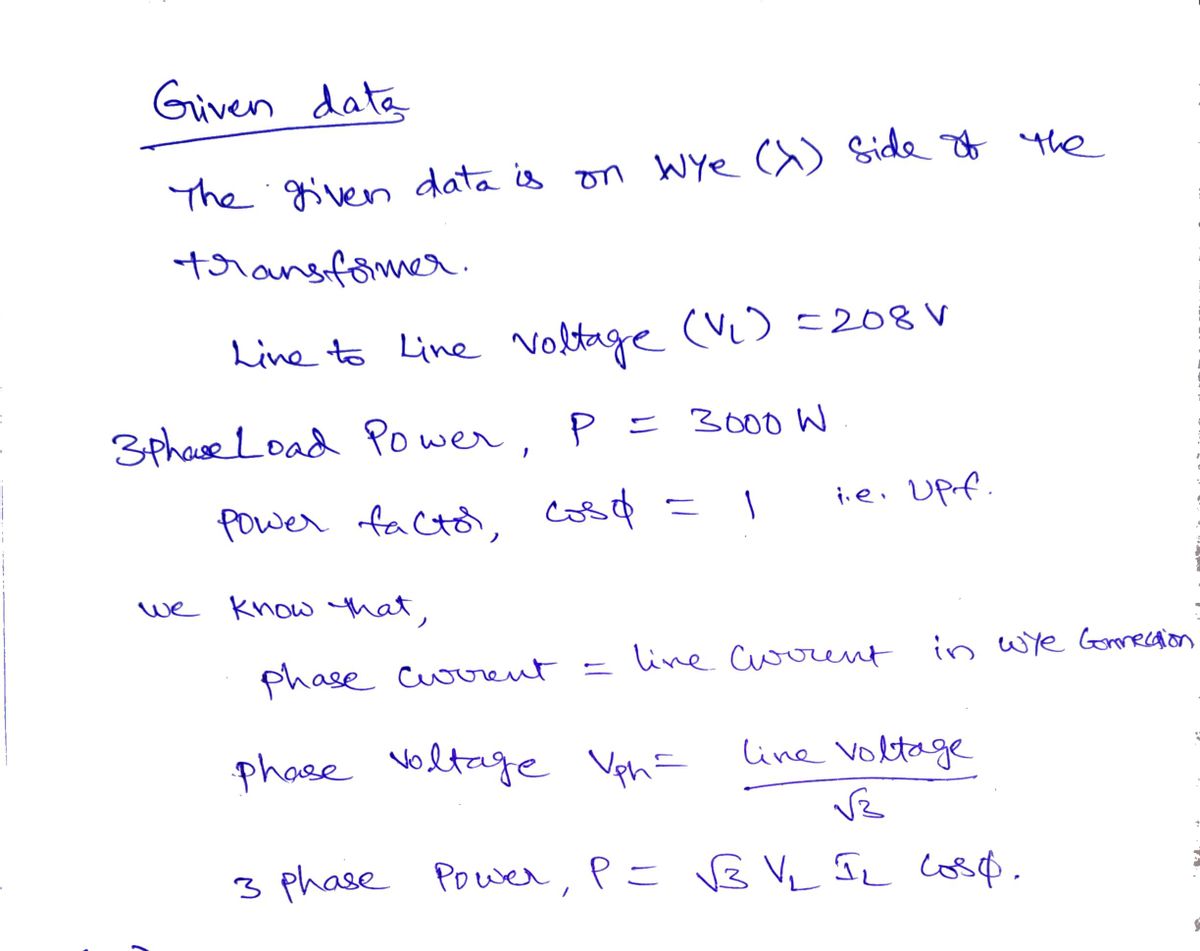 Given data
The given data is on Wye (⅄) side of the
transformer.
Line to Line Voltage (VL) = 208 V
3phase Load Power, P = 3000 W
Power factor, cosφ = 1 i.e. UPf.
we know that,
phase current = line current in wye Connection
phase voltage Vph = line voltage
√3
3 phase Power, P = √3 VL IL cosφ.